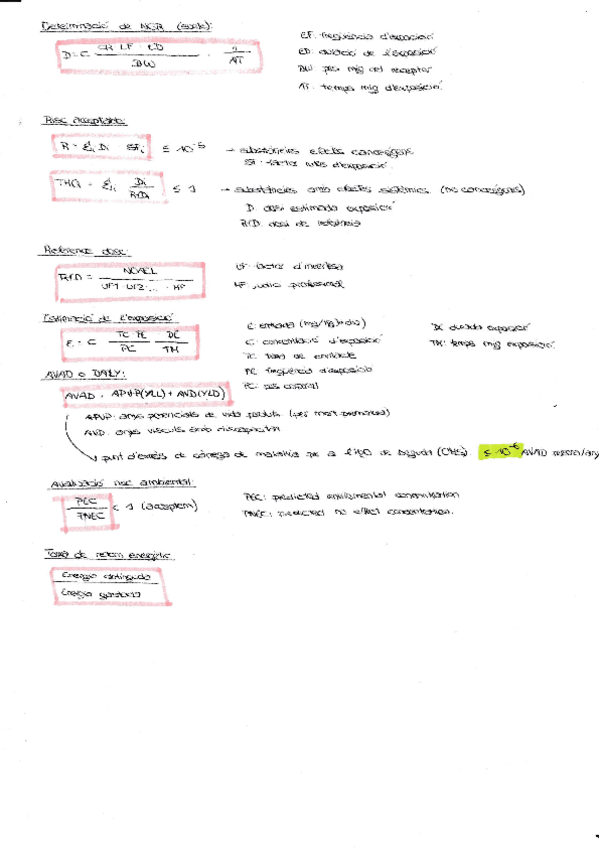 Determinació de NGR (sòls):
D = C · CR · EF · ED / BW · 1 / AT
EF: freqüència d'exposició
ED: duració de l'exposició
BW: pes mig del receptor
AT: temps mig d'exposició
Risc acceptable:
R = Σi Di · SFi ≤ 10⁻⁵ → substàncies efectes cancerígens
SF: factor d'exposició
THQ = Σi Di / RfDi ≤ 1 → substàncies amb efectes sistèmics (no cancerígens)
D: dosi estimada exposició
RfD: dosi de referència
Reference dose:
RfD = NOAEL / UF1 · UF2 · ... · MF
UF: factor d'incertesa
MF: judici professional
Estimació de l'exposició
E = C · TC · FE / PC · DE / TM
E: entrada (mg/kg·dia)
C: concentració d'exposició
TC: taxa de contacte
FE: freqüència d'exposició
PC: pes corporal
DE: duració exposició
TM: temps mig exposició
AVAD o DALY:
AVAD = APVP (YLL) + AVD (YLD)
APVP: anys potencials de vida perduts (per mort prematura)
AVD: anys viscuts amb discapacitat
punt d'excés de càrrega de malaltia per a l'ús de aigua (OMS). ≤ 10⁻⁶ AVAD persona/any
Avaluació risc ambiental:
PEC / PNEC < 1 (acceptem)
PEC: predicted environmental concentration
PNEC: predicted no effect concentration.
Taxa de retorn energètic
Energia obtinguda
Energia gastada